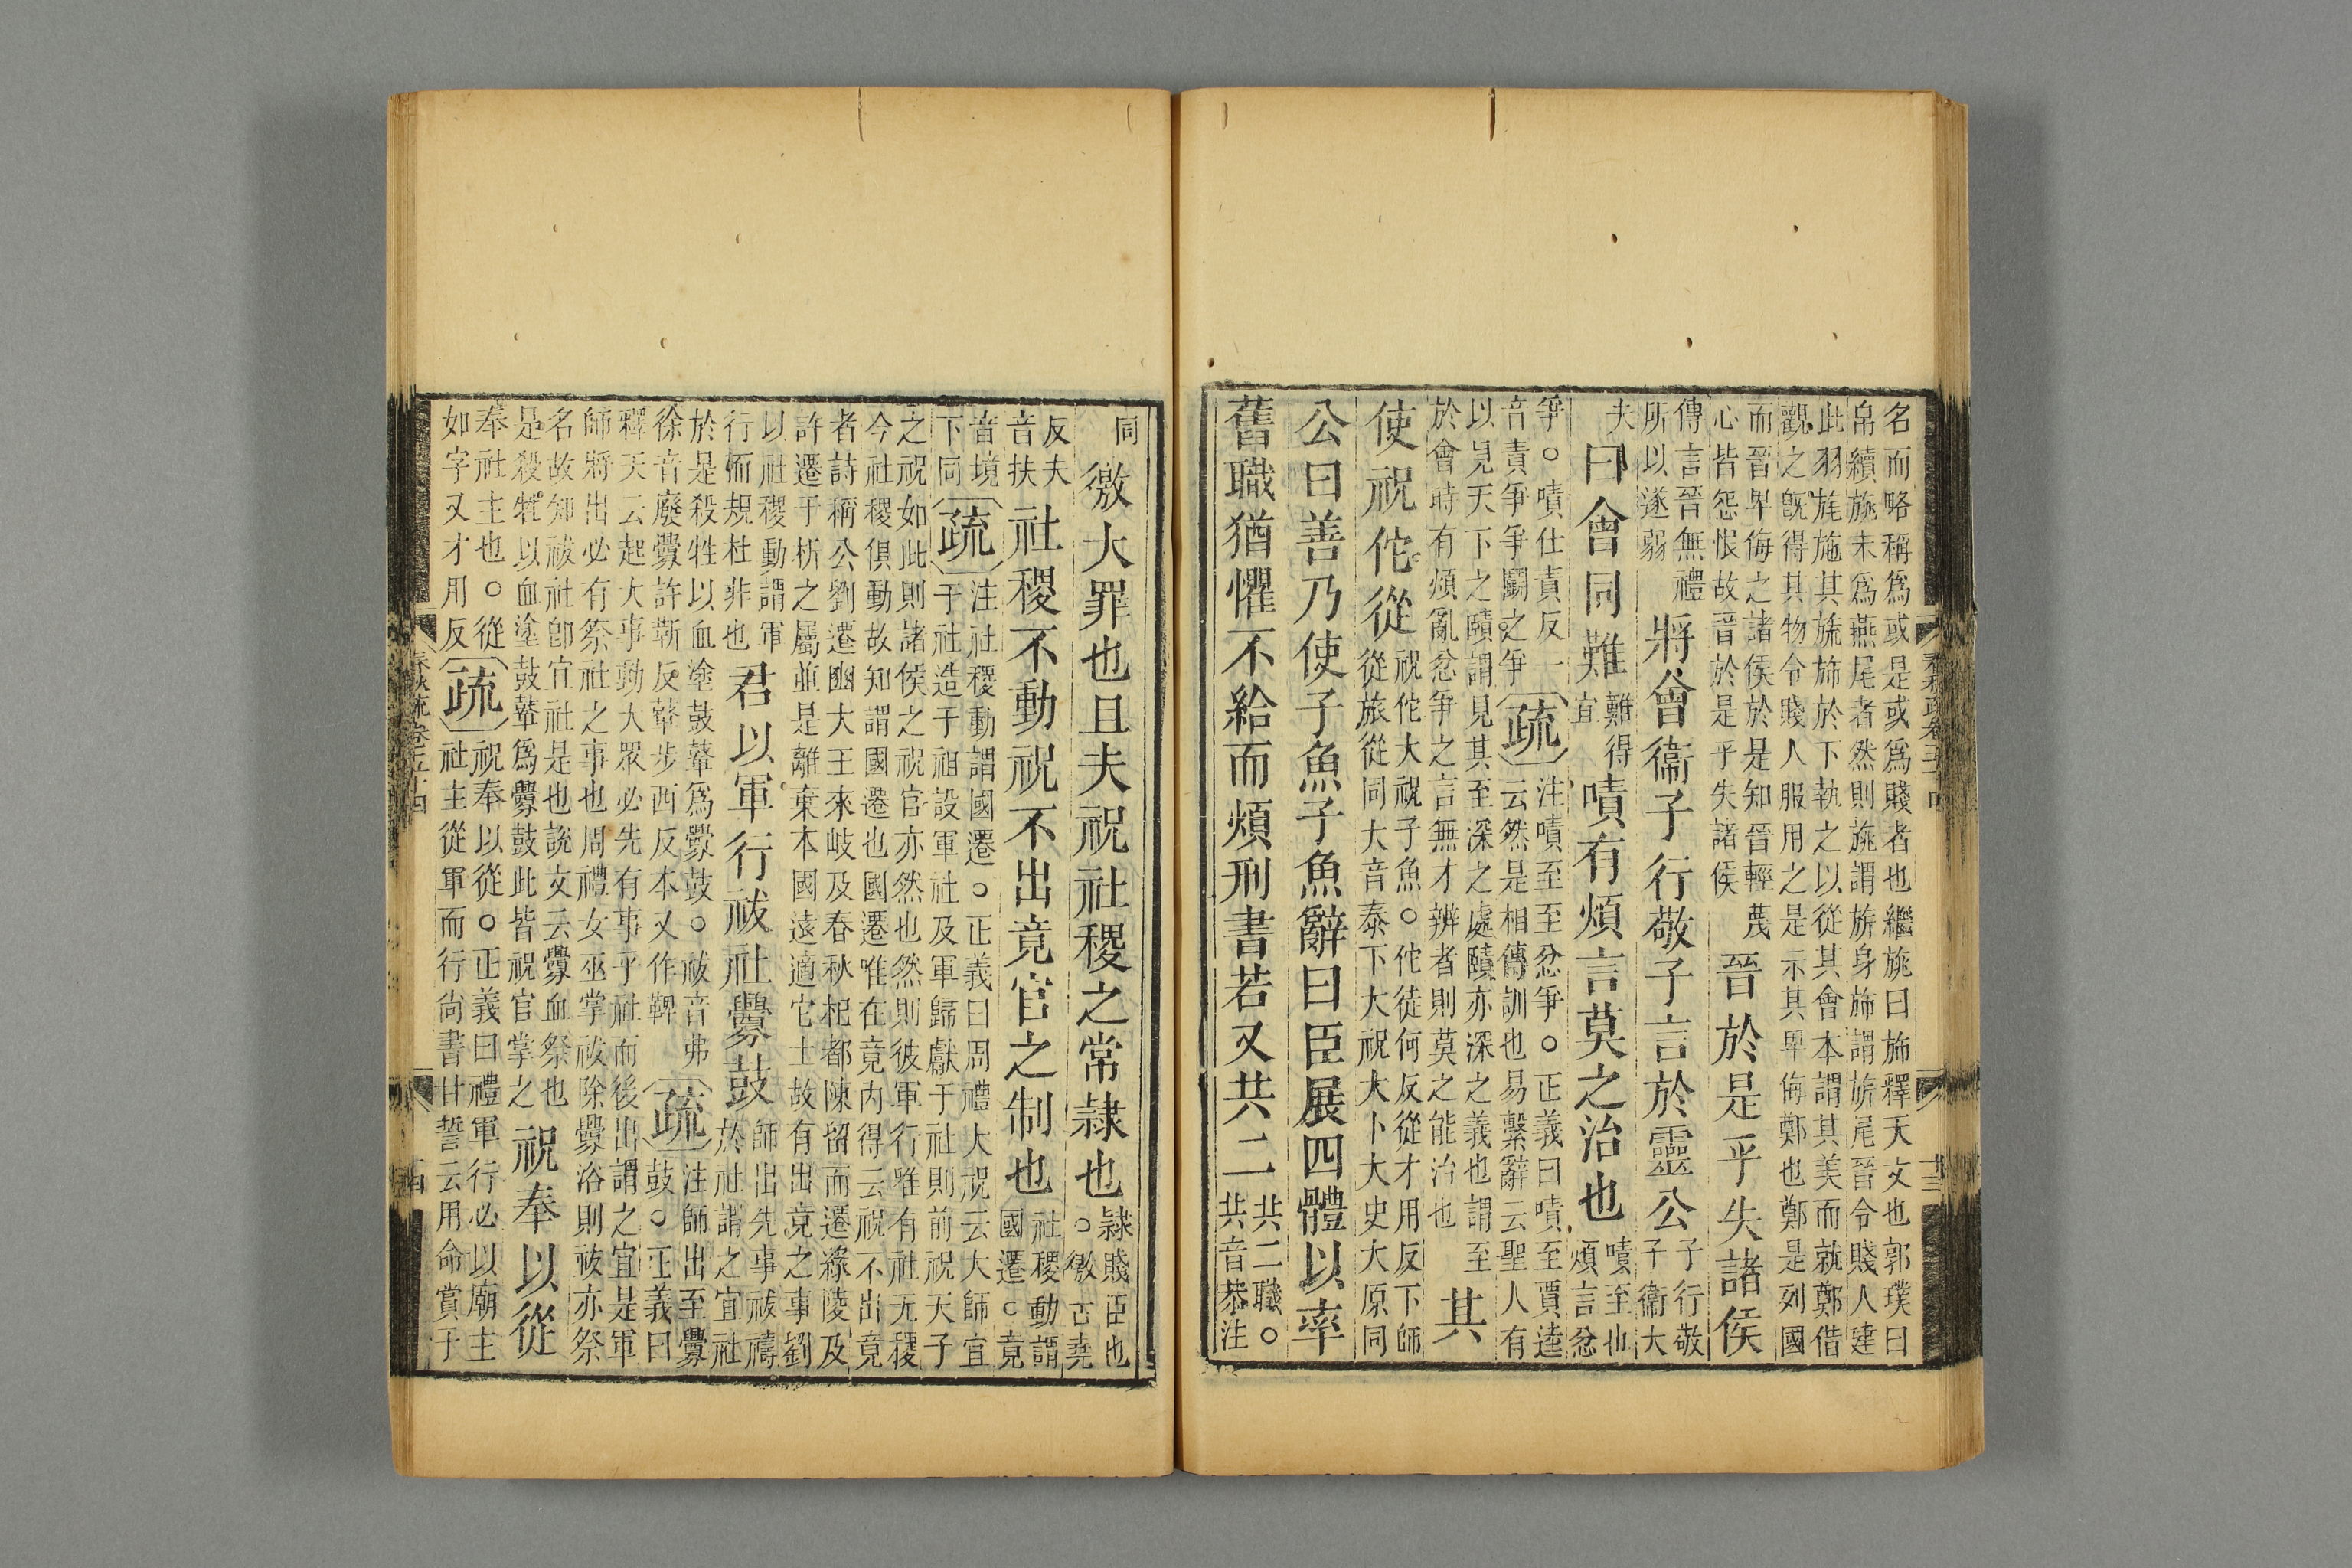 名而略稱爲或是或爲賤者也繼旐曰旆釋天文也郭璞曰
帛續旐末爲燕尾者然則旐謂旂身旆謂旂尾晉令賤人建
此羽旄施其旒旆於下執之以從其會本謂其美而就鄭借
觀之旣得其物令賤人服用之是示其卑侮鄭也鄭是列國
而晉卑侮之諸侯於是知晉輕蔑
心皆怨恨故晉於是乎失諸侯
晉於是乎失諸侯
傳言晉無禮
所以遂弱
將會衞子行敬子言於靈公
子行敬
子衞大
夫
曰會同難
難得
宜
嘖有煩言莫之治也
嘖至也
煩言忿
爭○嘖仕責反一
音責爭爭鬭之爭
疏
注嘖至至忿爭○正義曰嘖至賈逵
云然是相傳訓也易繫辭云聖人有
以見天下之賾謂見其至深之處賾亦深之義也謂至
於會時有煩亂忿爭之言無才辨者則莫之能治也
其
使祝佗從
祝佗大祝子魚○佗徒何反從才用反下師
從旅從同大音泰下大祝大卜大史大原同
公曰善乃使子魚子魚辭曰臣展四體以率
舊職猶懼不給而煩刑書若又共二
共二職○
共音恭注
同
徼大罪也且夫祝社稷之常隸也
隸賤臣也
○徼古堯
反夫
音扶
社稷不動祝不出竟官之制也
社稷動謂
國遷○竟
音境
下同
疏
注社稷動謂國遷○正義曰周禮大祝云大師宜
于社造于祖設軍社及軍歸獻于社則前祝天子
之祝如此則諸侯之祝官亦然也然則彼軍行唯有社无稷
今社稷俱動故知謂國遷也國遷唯在竟內得云祝不出竟
者詩稱公劉遷豳大王來岐及春秋杞都陳留而遷緣陵及
許遷于析之屬並是離棄本國遠適它土故有出竟之事劉
以社稷動謂軍
行而規杜非也
君以軍行祓社釁鼓
師出先事祓禱
於社謂之宜社
於是殺牲以血塗鼓鼙爲釁鼓○祓音弗
徐音廢釁許靳反鼙步西反本又作鞞
疏
注師出至釁
鼓○正義曰
釋天云起大事動大眾必先有事乎社而後出謂之宜是軍
師將出必有祭社之事也周禮女巫掌祓除釁浴則祓亦祭
名故知祓社卽宜社是也說文云釁血祭也
是殺牲以血塗鼓鼙爲釁鼓此皆祝官掌之
祝奉以從
奉社主也○從
如字又才用反
疏
祝奉以從○正義曰禮軍行必以廟主
社主從軍而行尙書甘誓云用命賞于